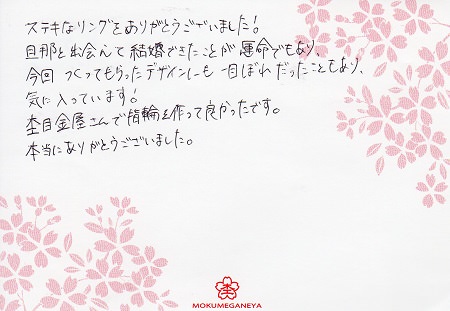 ステキなリングをありがとうございました!
旦那と出会えて結婚できたことが運命でもあり、
今回つくってもらったデザインにも一目ぼれだったこともあり、
気に入っています!
杢目金屋さんで指輪を作って良かったです。
本当にありがとうございました。
杢
MOKUMEGANEYA